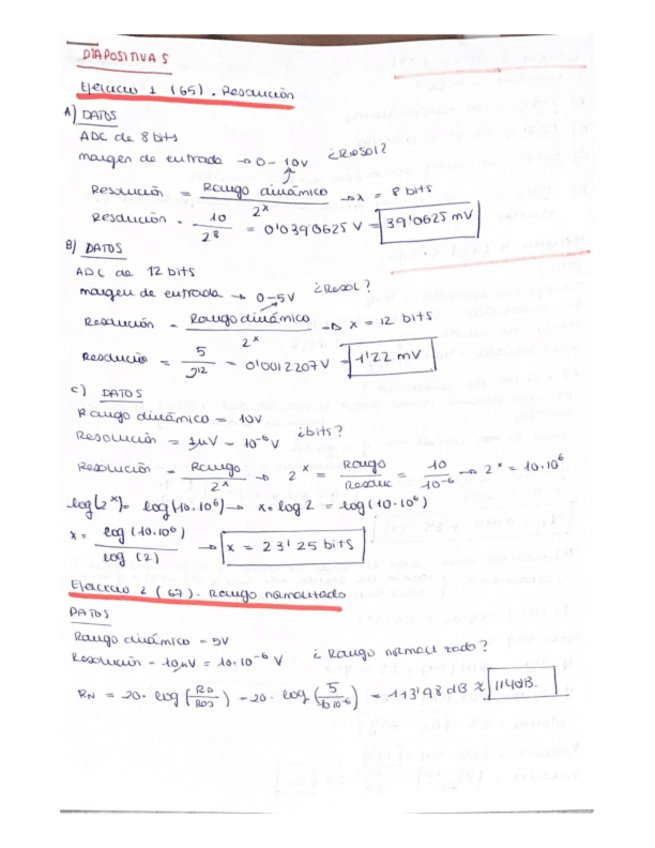 DIAPOSITIVAS
Ejercicio 1 (65). Resolución
A) DATOS
ADC de 8 bits
margen de entrada → 0 - 10V ¿Resol?
Resolución = Rango dinámico / 2^x → x = 8 bits
Resolución = 10 / 2^8 = 0'0390625 V = 39'0625 mV
B) DATOS
ADC de 12 bits
margen de entrada → 0-5V ¿Resol?
Resolución = Rango dinámico / 2^x → x = 12 bits
Resolución = 5 / 2^12 = 0'0012207V = 1'22 mV
C) DATOS
Rango dinámico = 10V
Resolución = 1μV = 10^-6 V ¿bits?
Resolución = Rango / 2^x → 2^x = Rango / Resoluc = 10 / 10^-6 → 2^x = 10·10^6
log(2^x) = log(10·10^6) → x·log 2 = log(10·10^6)
x = log(10·10^6) / log(2) → x = 23'25 bits
Ejercicio 2 (67). Rango normalizado
DATOS
Rango dinámico = 5V
Resolución = 10μV = 10·10^-6 V ¿Rango normalizado?
RN = 20· log (RD / RES) = 20· log (5 / 10·10^-6) = 113'98 dB ≈ 114dB.